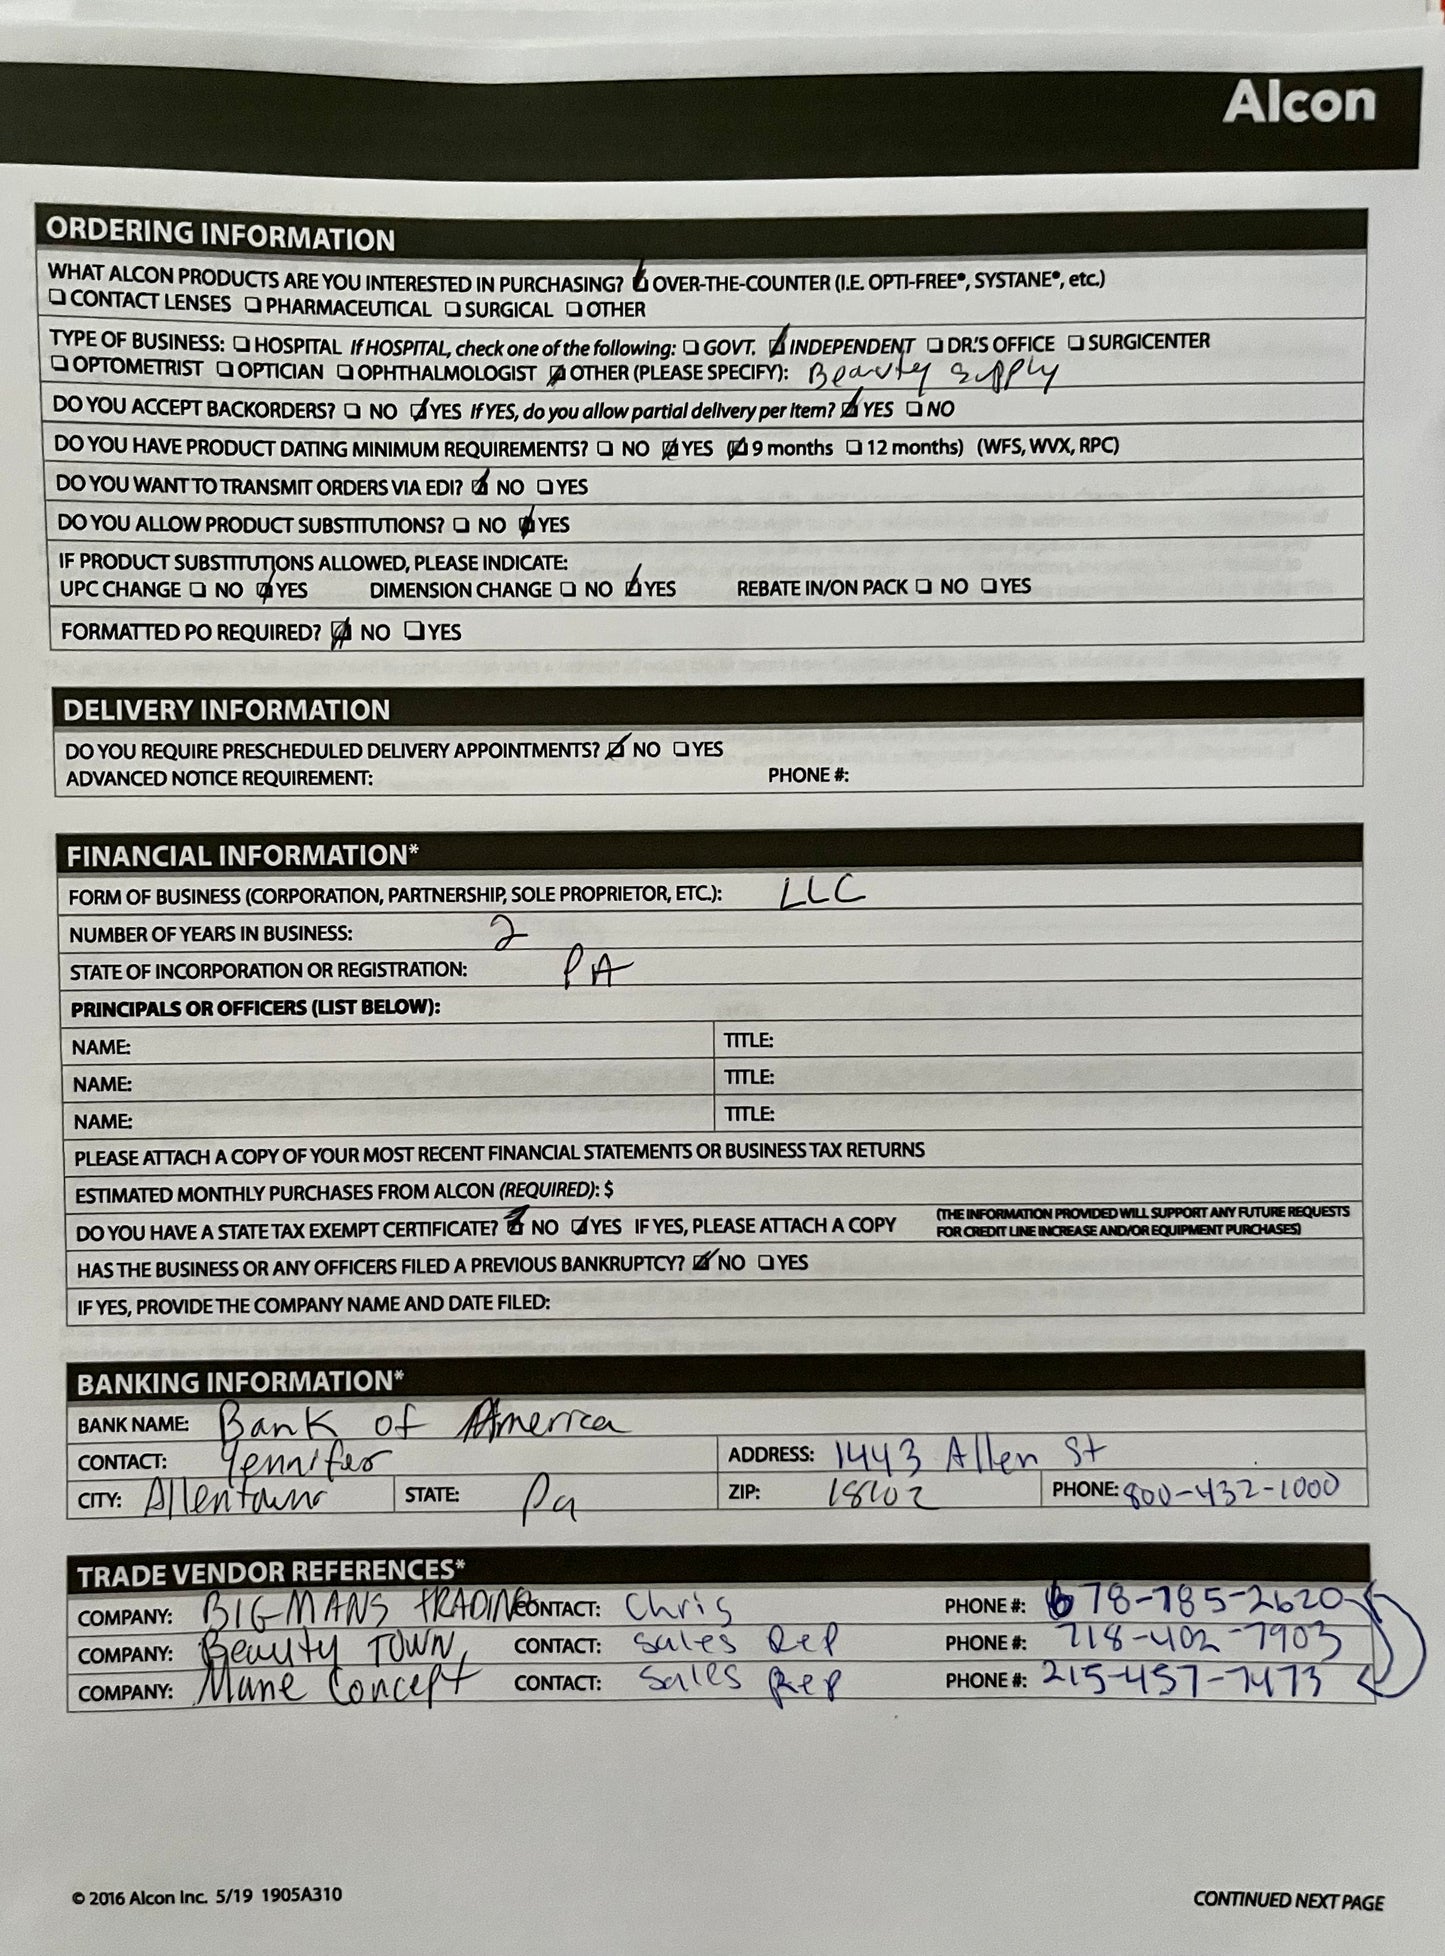 Alcon
ORDERING INFORMATION
WHAT ALCON PRODUCTS ARE YOU INTERESTED IN PURCHASING? ☑ OVER-THE-COUNTER (I.E. OPTI-FREE®, SYSTANE®, etc.)
☐ CONTACT LENSES ☐ PHARMACEUTICAL ☐ SURGICAL ☐ OTHER
TYPE OF BUSINESS: ☐ HOSPITAL If HOSPITAL, check one of the following: ☐ GOVT. ☑ INDEPENDENT ☐ DR.'S OFFICE ☐ SURGICENTER
☐ OPTOMETRIST ☐ OPTICIAN ☐ OPHTHALMOLOGIST ☑ OTHER (PLEASE SPECIFY): Beauty Supply
DO YOU ACCEPT BACKORDERS? ☐ NO ☑ YES If YES, do you allow partial delivery per item? ☑ YES ☐ NO
DO YOU HAVE PRODUCT DATING MINIMUM REQUIREMENTS? ☐ NO ☑ YES (☑ 9 months ☐ 12 months) (WFS, WVX, RPC)
DO YOU WANT TO TRANSMIT ORDERS VIA EDI? ☑ NO ☐ YES
DO YOU ALLOW PRODUCT SUBSTITUTIONS? ☐ NO ☑ YES
IF PRODUCT SUBSTITUTIONS ALLOWED, PLEASE INDICATE:
UPC CHANGE ☐ NO ☑ YES DIMENSION CHANGE ☐ NO ☑ YES REBATE IN/ON PACK ☐ NO ☐ YES
FORMATTED PO REQUIRED? ☑ NO ☐ YES
DELIVERY INFORMATION
DO YOU REQUIRE PRESCHEDULED DELIVERY APPOINTMENTS? ☑ NO ☐ YES
ADVANCED NOTICE REQUIREMENT: PHONE #:
FINANCIAL INFORMATION*
FORM OF BUSINESS (CORPORATION, PARTNERSHIP, SOLE PROPRIETOR, ETC.): LLC
NUMBER OF YEARS IN BUSINESS: 2
STATE OF INCORPORATION OR REGISTRATION: PA
PRINCIPALS OR OFFICERS (LIST BELOW):
NAME: TITLE:
NAME: TITLE:
NAME: TITLE:
PLEASE ATTACH A COPY OF YOUR MOST RECENT FINANCIAL STATEMENTS OR BUSINESS TAX RETURNS
ESTIMATED MONTHLY PURCHASES FROM ALCON (REQUIRED): $
DO YOU HAVE A STATE TAX EXEMPT CERTIFICATE? ☑ NO ☑ YES IF YES, PLEASE ATTACH A COPY (THE INFORMATION PROVIDED WILL SUPPORT ANY FUTURE REQUESTS
FOR CREDIT LINE INCREASE AND/OR EQUIPMENT PURCHASES)
HAS THE BUSINESS OR ANY OFFICERS FILED A PREVIOUS BANKRUPTCY? ☑ NO ☐ YES
IF YES, PROVIDE THE COMPANY NAME AND DATE FILED:
BANKING INFORMATION*
BANK NAME: Bank of America
CONTACT: Yennifer ADDRESS: 1443 Allen St
CITY: Allentown STATE: Pa ZIP: 18102 PHONE: 800-432-1000
TRADE VENDOR REFERENCES*
COMPANY: BIGMANS TRADING CONTACT: Chris PHONE #: 678-785-2620
COMPANY: Beauty TOWN, CONTACT: Sales Rep PHONE #: 718-402-7903
COMPANY: Mane Concept CONTACT: Sales Rep PHONE #: 215-457-7473
© 2016 Alcon Inc. 5/19 1905A310
CONTINUED NEXT PAGE